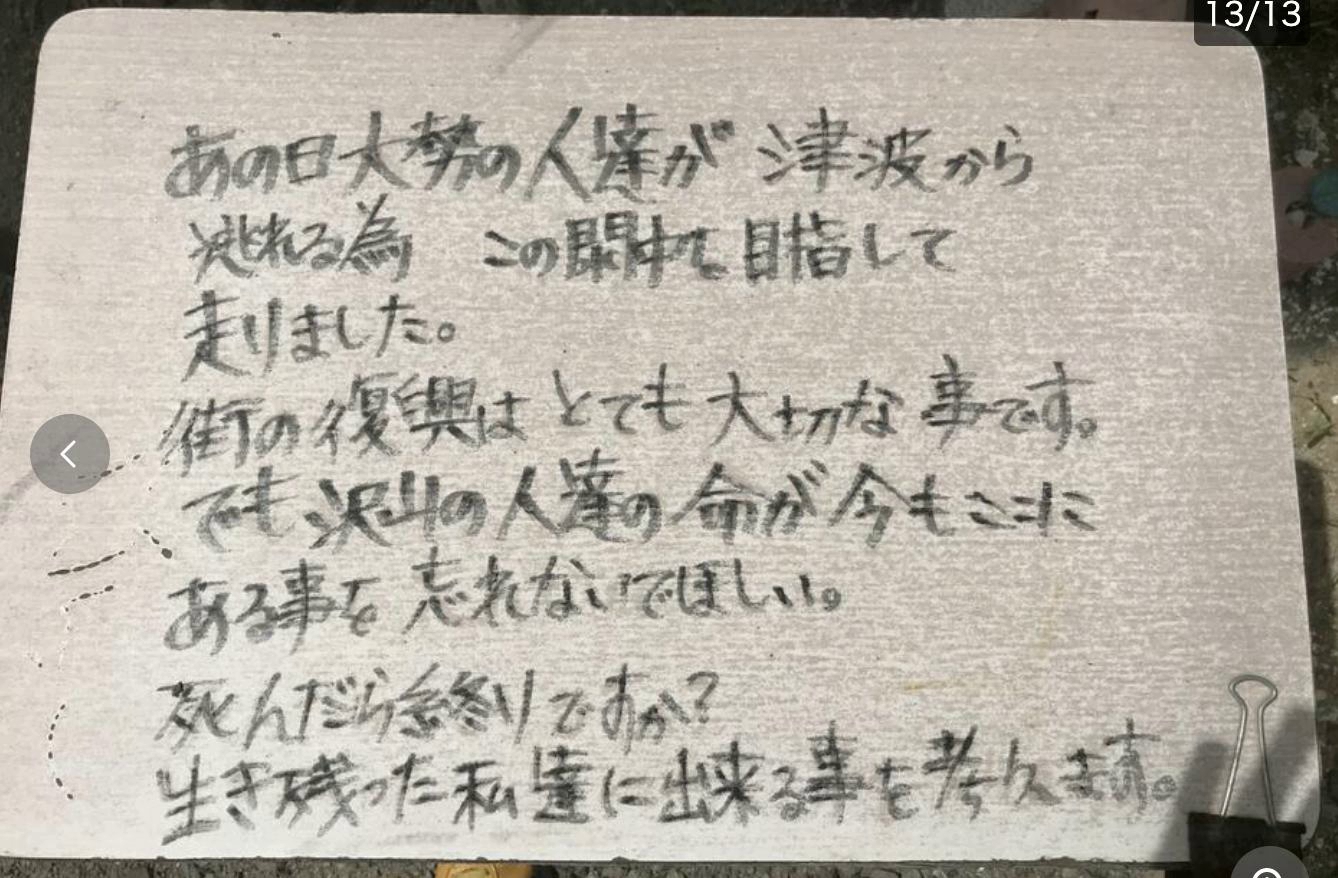 13/13
あの日大勢の人達が 津波から
逃れる為 この閖中を目指して
走りました。
街の復興は とても大切な事です。
でも 沢山の人達の命が今もここに
ある事を 忘れないでほしい。
死んだら終りですか?
生き残った私達に出来る事を考えます。